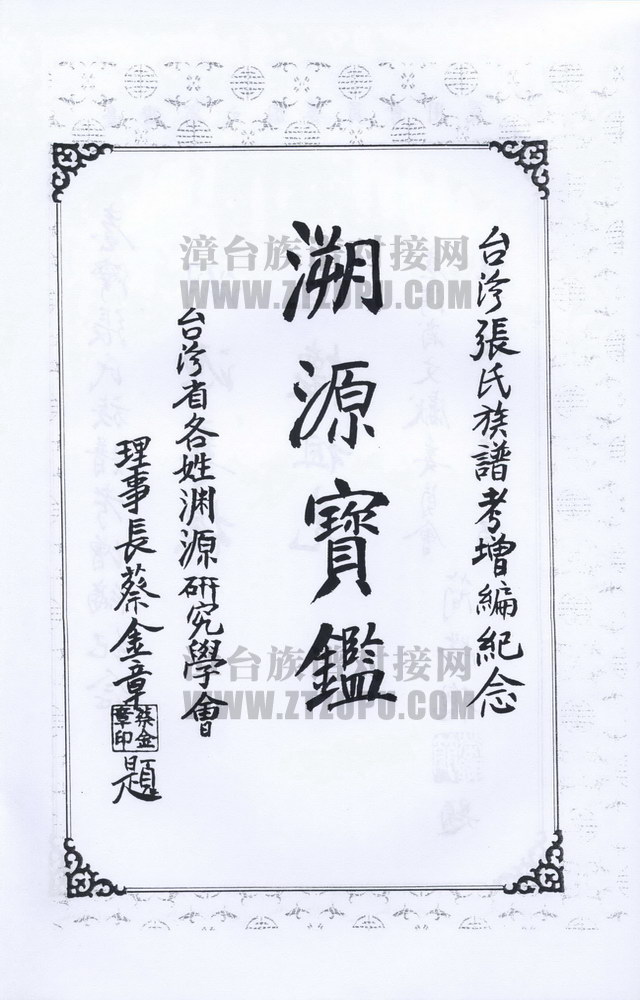 台湾張氏族譜考增編紀念
溯源寶鑑
台湾省各姓渊源研究學會
理事長蔡金章題
蔡金章印
漳台族谱对接网
WWW.ZTZUPU.COM
漳台族谱对接网
WWW.ZTZUPU.COM